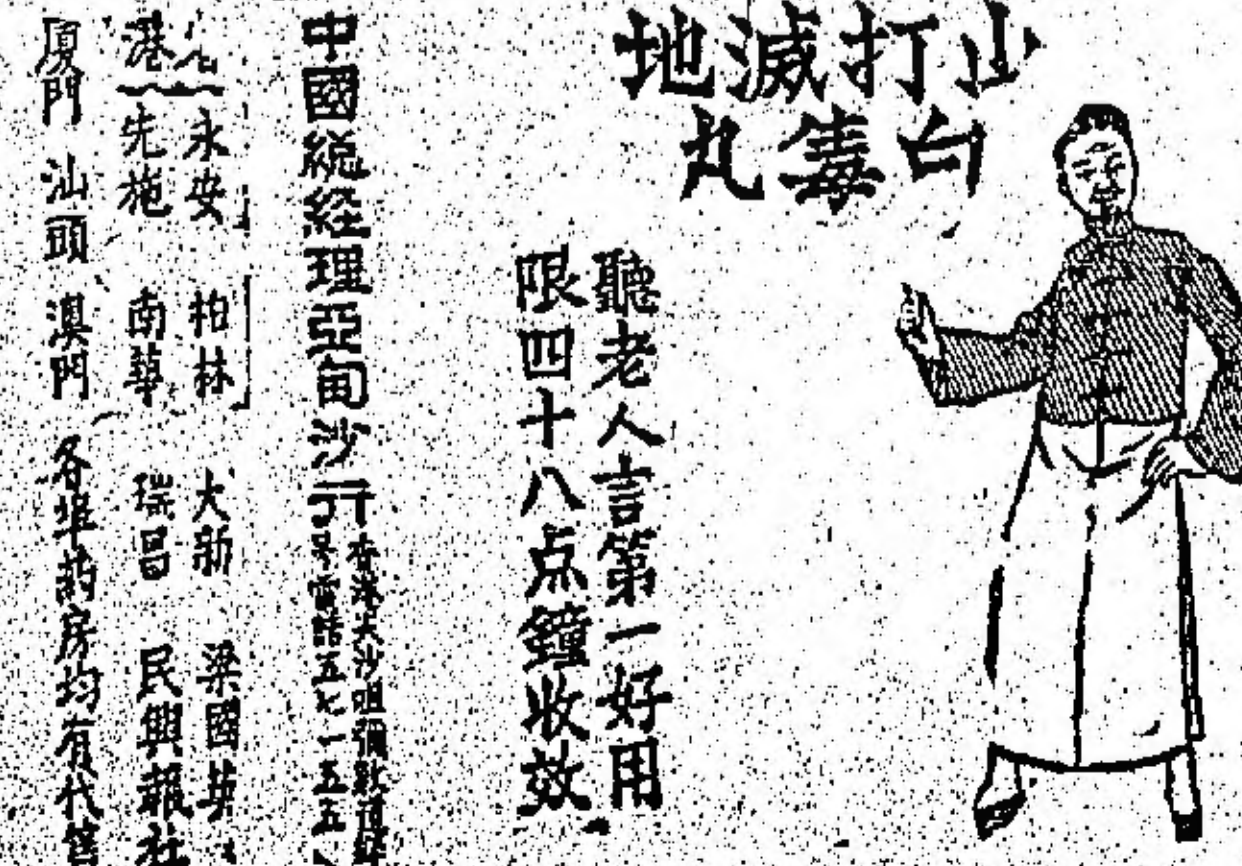 山打滅地
白毒丸
聽老人言第一好用
限四十八点鐘收效
中國總經理亞甸沙行
香港尖沙咀彌敦道
電話五七一五五
港 永安 柏林 大新 梁國英
先施 南華 瑞昌 民興報社
廈門 汕頭 澳門 各埠葯房均有代售